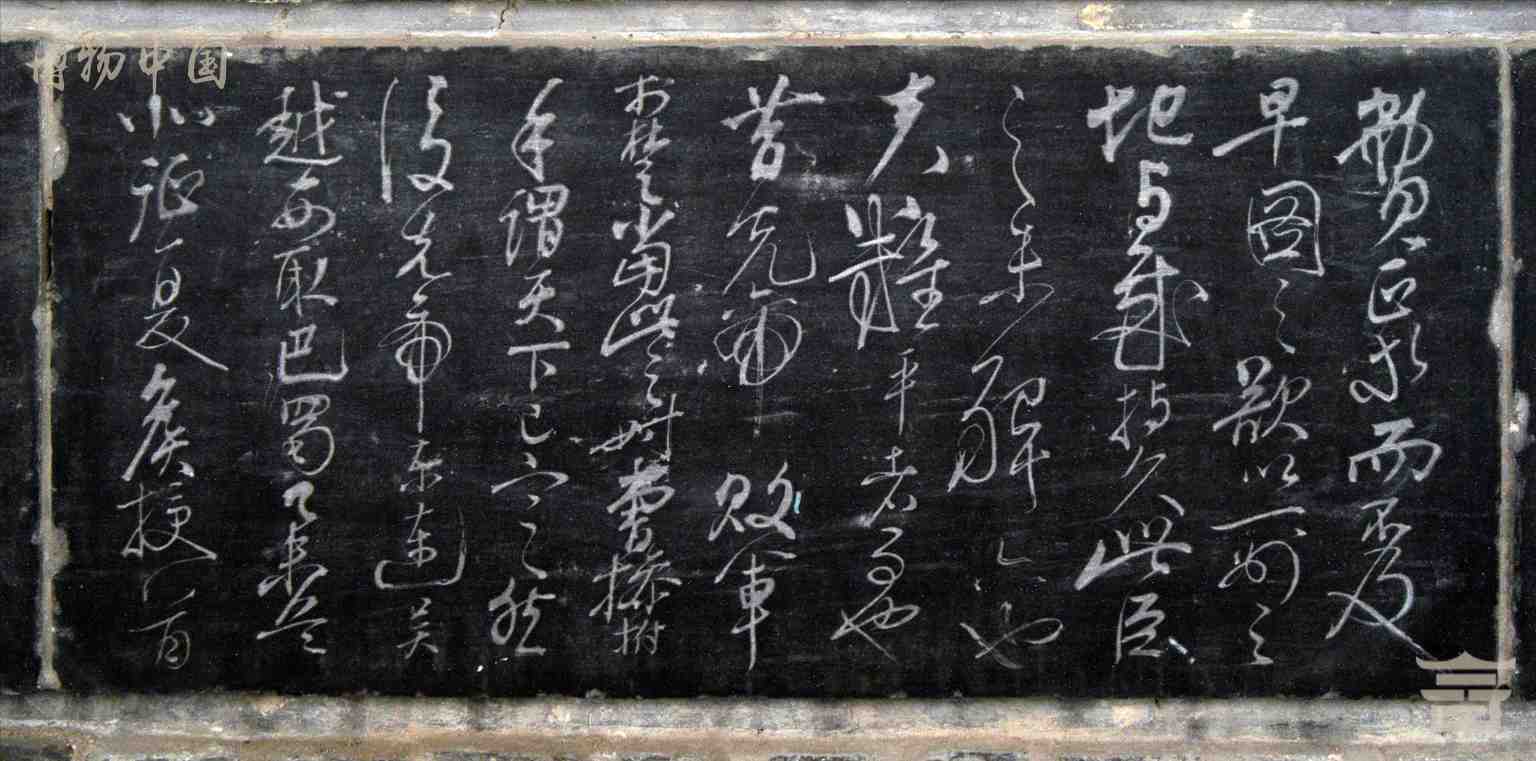 博物中国
費正等而不及
早圖之欲以一州之
地與賊持久此臣
之未解六也
夫難平者事也
昔先帝敗軍
於楚當此之時曹操拊
手謂天下已定然
後先帝東連吳
越西取巴蜀舉兵
北征夏侯授首